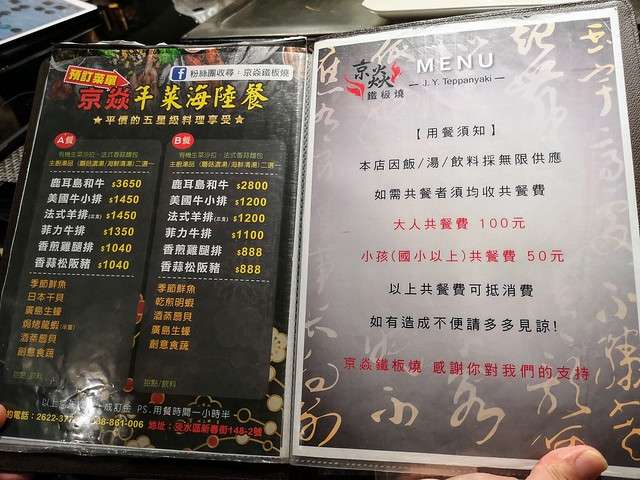 預訂菜單
粉絲團收尋：京焱鐵板燒
京焱年菜海陸餐
★平價的五星級料理享受★
A餐
有機生菜沙拉、法式香蒜麵包
主廚湯品（蘑菇濃湯/海鮮清湯）二選一
鹿耳島和牛 $3650
美國牛小排 $1450
法式羊排 $1450
菲力牛排 $1350
香煎雞腿排 $1040
香蒜松阪豬 $1040
季節鮮魚
日本干貝
廣島生蠔
焗烤龍蝦(半隻)
酒蒸扇貝
創意食蔬
甜點/飲料
B餐
有機生菜沙拉、法式香蒜麵包
主廚湯品（蘑菇濃湯/海鮮清湯）二選一
鹿耳島和牛 $2800
美國牛小排 $1200
法式羊排 $1200
菲力牛排 $1100
香煎雞腿排 $888
香蒜松阪豬 $888
季節鮮魚
乾煎明蝦
酒蒸扇貝
廣島生蠔
創意食蔬
甜點/飲料
以上 成訂金 PS.用餐時間一小時半
約電話：2622-37 88-861-006 地址：淡水區新春街148-2號
京焱
鐵板燒
MENU
J. Y. Teppanyaki
【用餐須知】
本店因飯/湯/飲料採無限供應
如需共餐者須均收共餐費
大人共餐費 100元
小孩(國小以上)共餐費 50元
以上共餐費可抵消費
如有造成不便請多多見諒!
京焱鐵板燒 感謝你對我們的支持